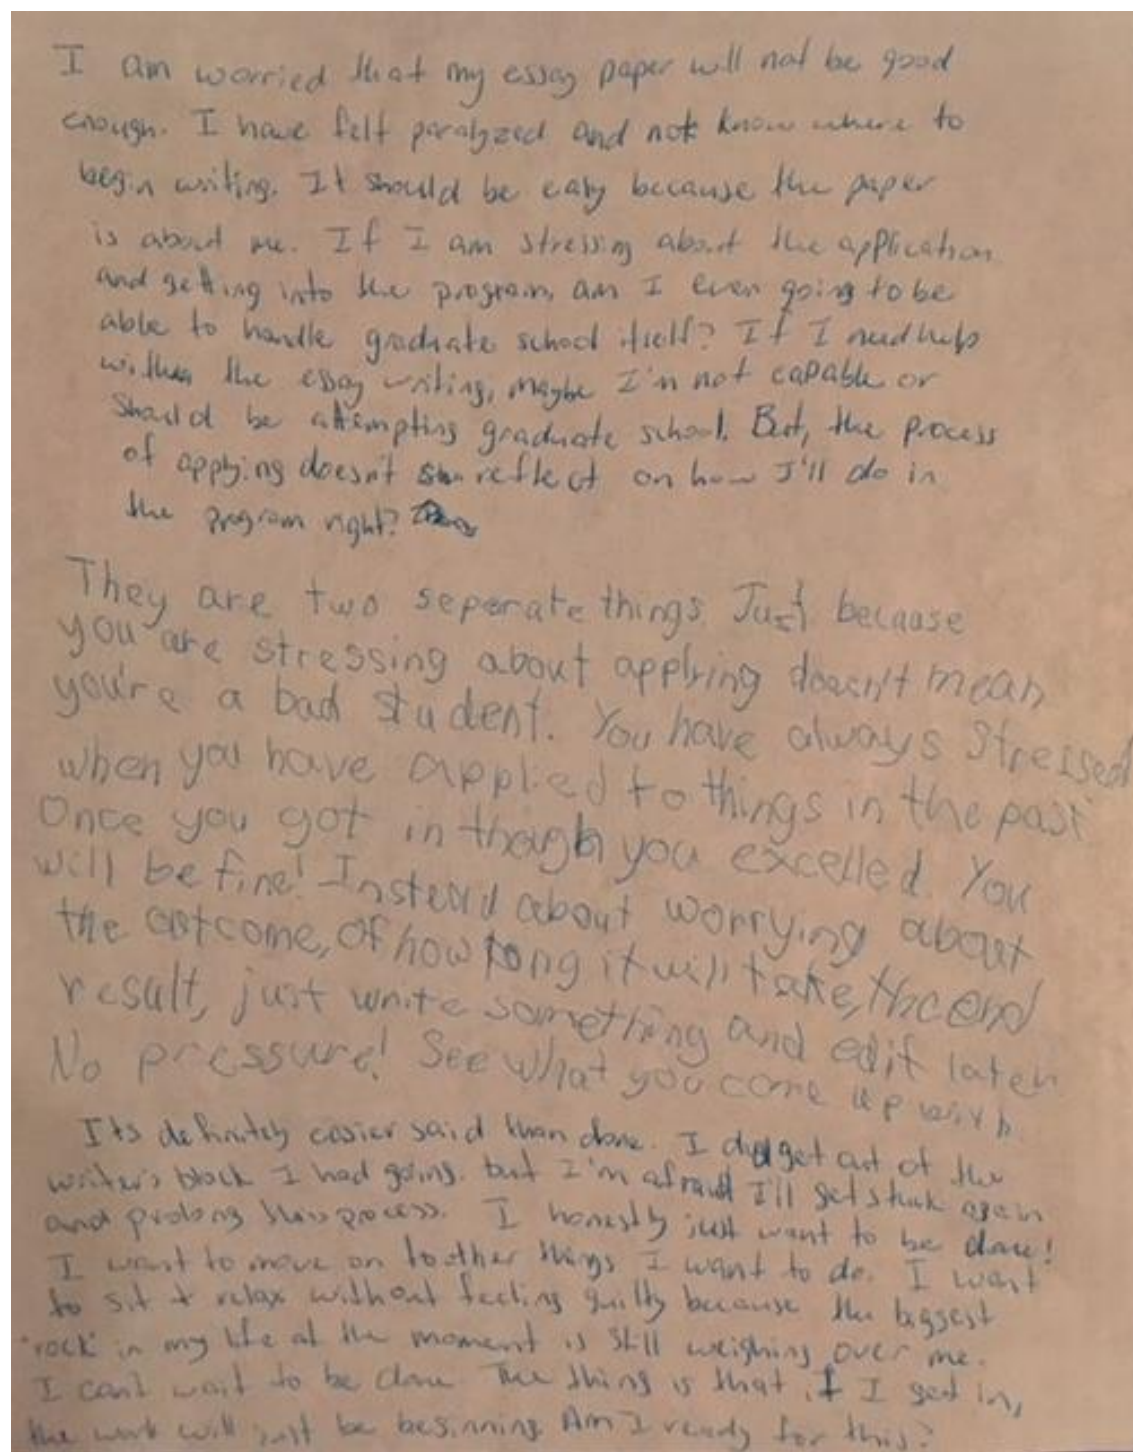 I am worried that my essay paper will not be good
enough. I have felt paralyzed and not know where to
begin writing. It should be easy because the paper
is about me. If I am stressing about the application
and getting into the program, am I even going to be
able to handle graduate school itself? If I need help
with the essay writing, maybe I'm not capable or
should be attempting graduate school. But, the process
of applying doesn't reflect on how I'll do in
the program right?
They are two seperate things. Just because
you are stressing about applying doesn't mean
you're a bad student. You have always stressed
when you have applied to things in the past
Once you got in though you excelled. You
will be fine! Instead about worrying about
the outcome, of how long it will take, the end
result, just write something and edit later
No pressure! See what you come up with.
Its definitely easier said than done. I did get out of the
writer's block I had going, but I'm afraid I'll get stuck again
and prolong this process. I honestly just want to be done!
I want to move on to other things I want to do. I want
to sit + relax without feeling guilty because the biggest
'rock' in my life at the moment is still weighing over me.
I can't wait to be done. The thing is that if I get in,
the work will just be beginning. Am I ready for this?